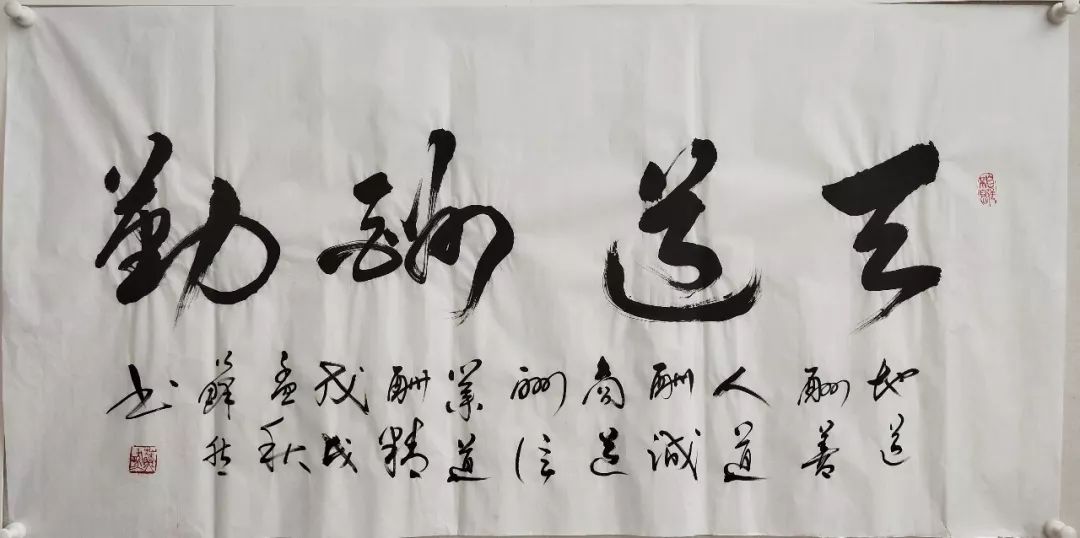 天道酬勤
地道
酬善
人道
酬诚
商道
酬信
業道
酬精
戊戌
孟秋
书